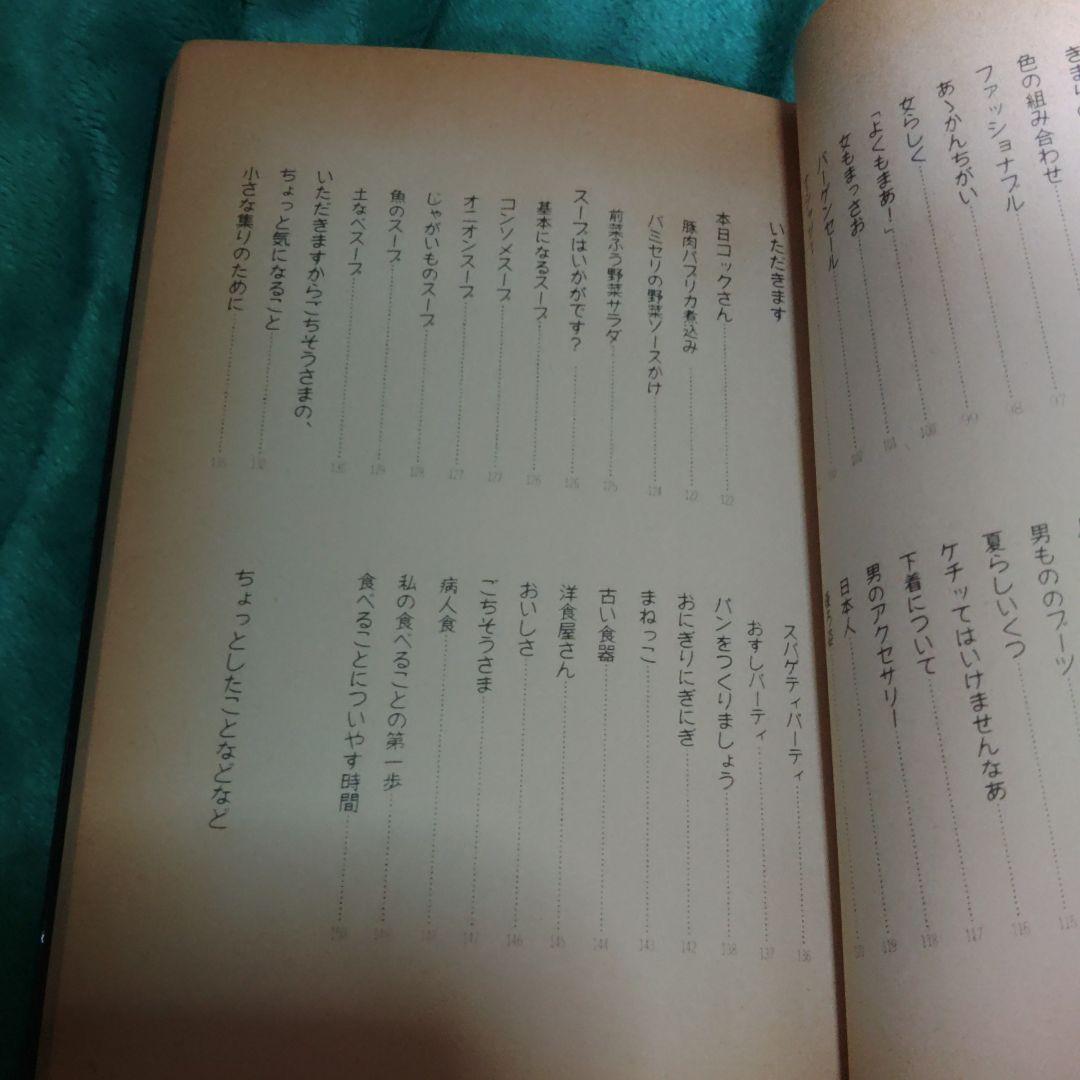 色の組み合わせ……97
ファッショナブル……98
あゝかんちがい……99
女らしく……100
「よくもまあ！」……101
女もまっさお……102
バーゲンセール
男もののブーツ……115
夏らしいくつ……116
ケチッてはいけませんなあ……117
下着について……118
男のアクセサリー……119
日本人
いただきます
本日コックさん……122
豚肉パプリカ煮込み……122
バミセリの野菜ソースかけ……124
前菜ふう野菜サラダ……125
スープはいかがです？……126
基本になるスープ……126
コンソメスープ……127
オニオンスープ……127
じゃがいものスープ……128
魚のスープ……129
土なべスープ……130
いただきますからごちそうさまの、
ちょっと気になること……132
小さな集りのために……135
スパゲティパーティ……136
おすしパーティ……137
パンをつくりましょう……138
おにぎりにぎにぎ……142
まねっこ……143
古い食器……144
洋食屋さん……145
おいしさ……146
ごちそうさま……147
病人食……147
私の食べることの第一歩……148
食べることについやす時間……150
ちょっとしたことなどなど